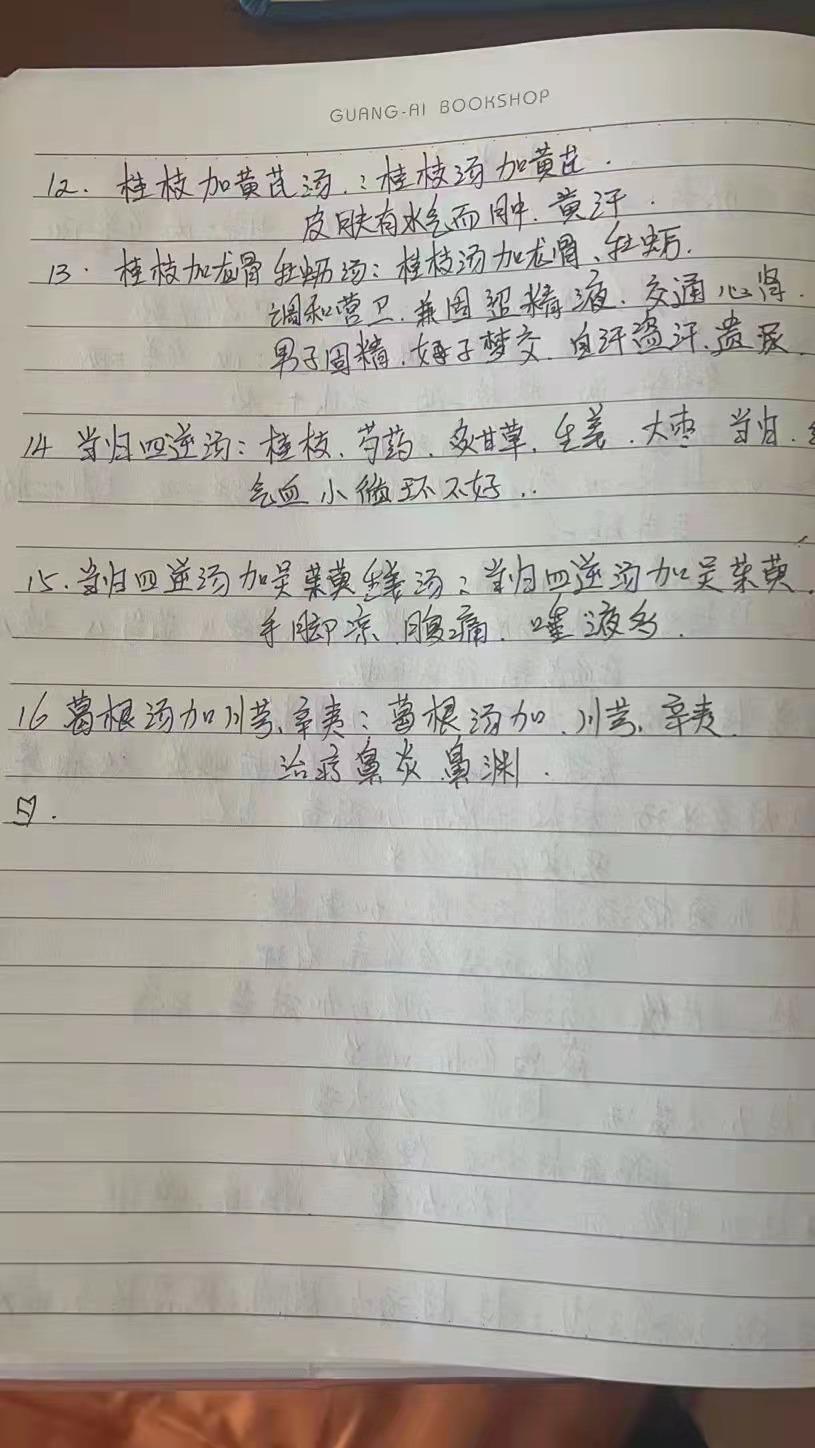 GUANG-AI BOOKSHOP
12. 桂枝加黄芪汤：桂枝汤加黄芪.
皮肤有水气而肿. 黄汗.
13. 桂枝加龙骨牡蛎汤：桂枝汤加龙骨、牡蛎.
调和营卫. 兼固涩精液. 交通心肾.
男子固精. 女子梦交. 自汗盗汗. 遗尿.
14 当归四逆汤：桂枝. 芍药. 炙甘草. 生姜. 大枣 当归.
气血小循环不好..
15. 当归四逆汤加吴茱萸生姜汤：当归四逆汤加吴茱萸.
手脚凉. 腹痛. 唾液多.
16 葛根汤加川芎、辛夷：葛根汤加.川芎、辛夷.
治疗鼻炎 鼻渊.